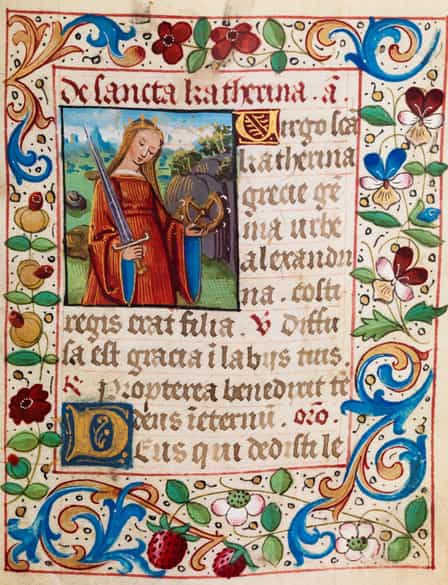 De sancta katherina . a͞
Uirgo sca
katherina
grecie ge͞
ma urbe
alexandri
na . costi
regis erat filia . V Diffu
sa est gracia i labijs tuis .
R Propterea benedixit te͞
deus ieternu͞ . oro͞
Deus qui dedisti le